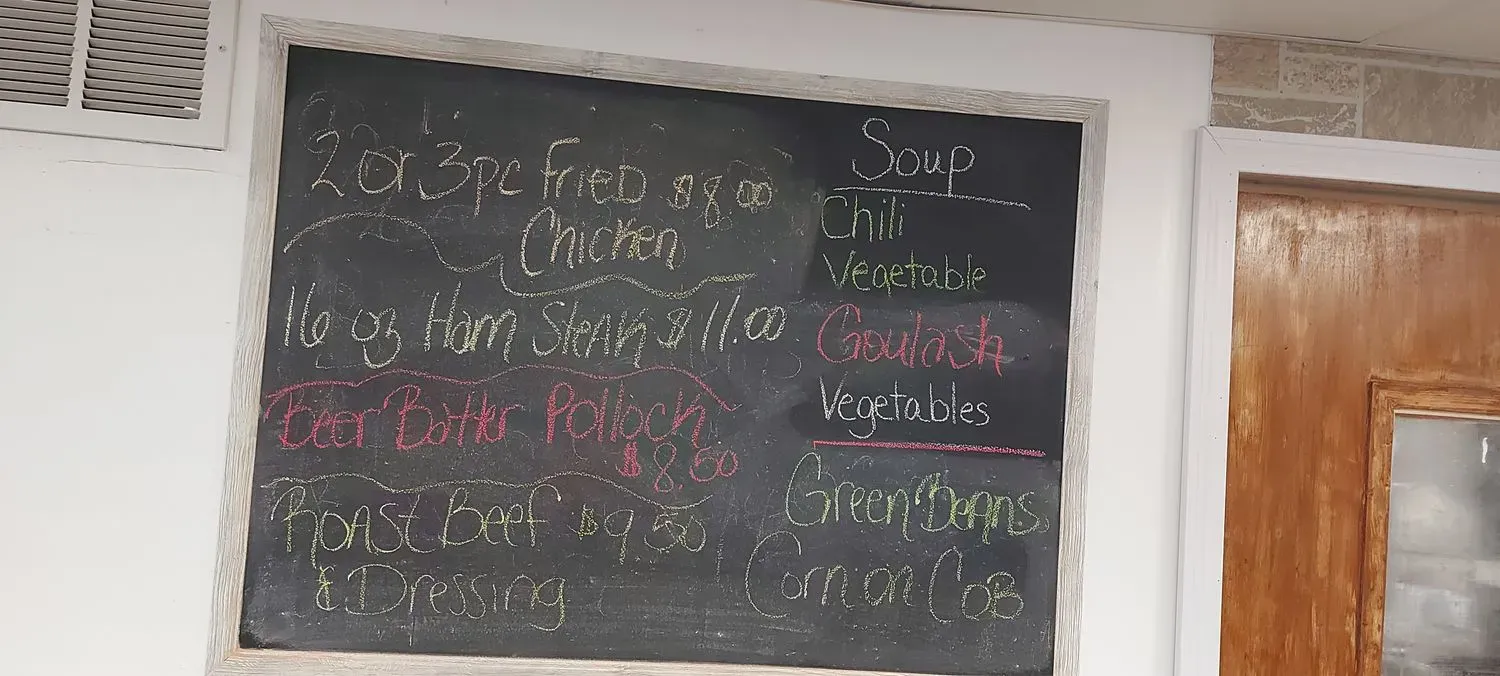 2 or 3pc Fried $8.00
Chicken
16 oz Ham Steak $11.00
Beer Batter Pollock
$8.50
Roast Beef $9.50
& Dressing
Soup
Chili
Vegetable
Goulash
Vegetables
Green Beans
Corn on Cob